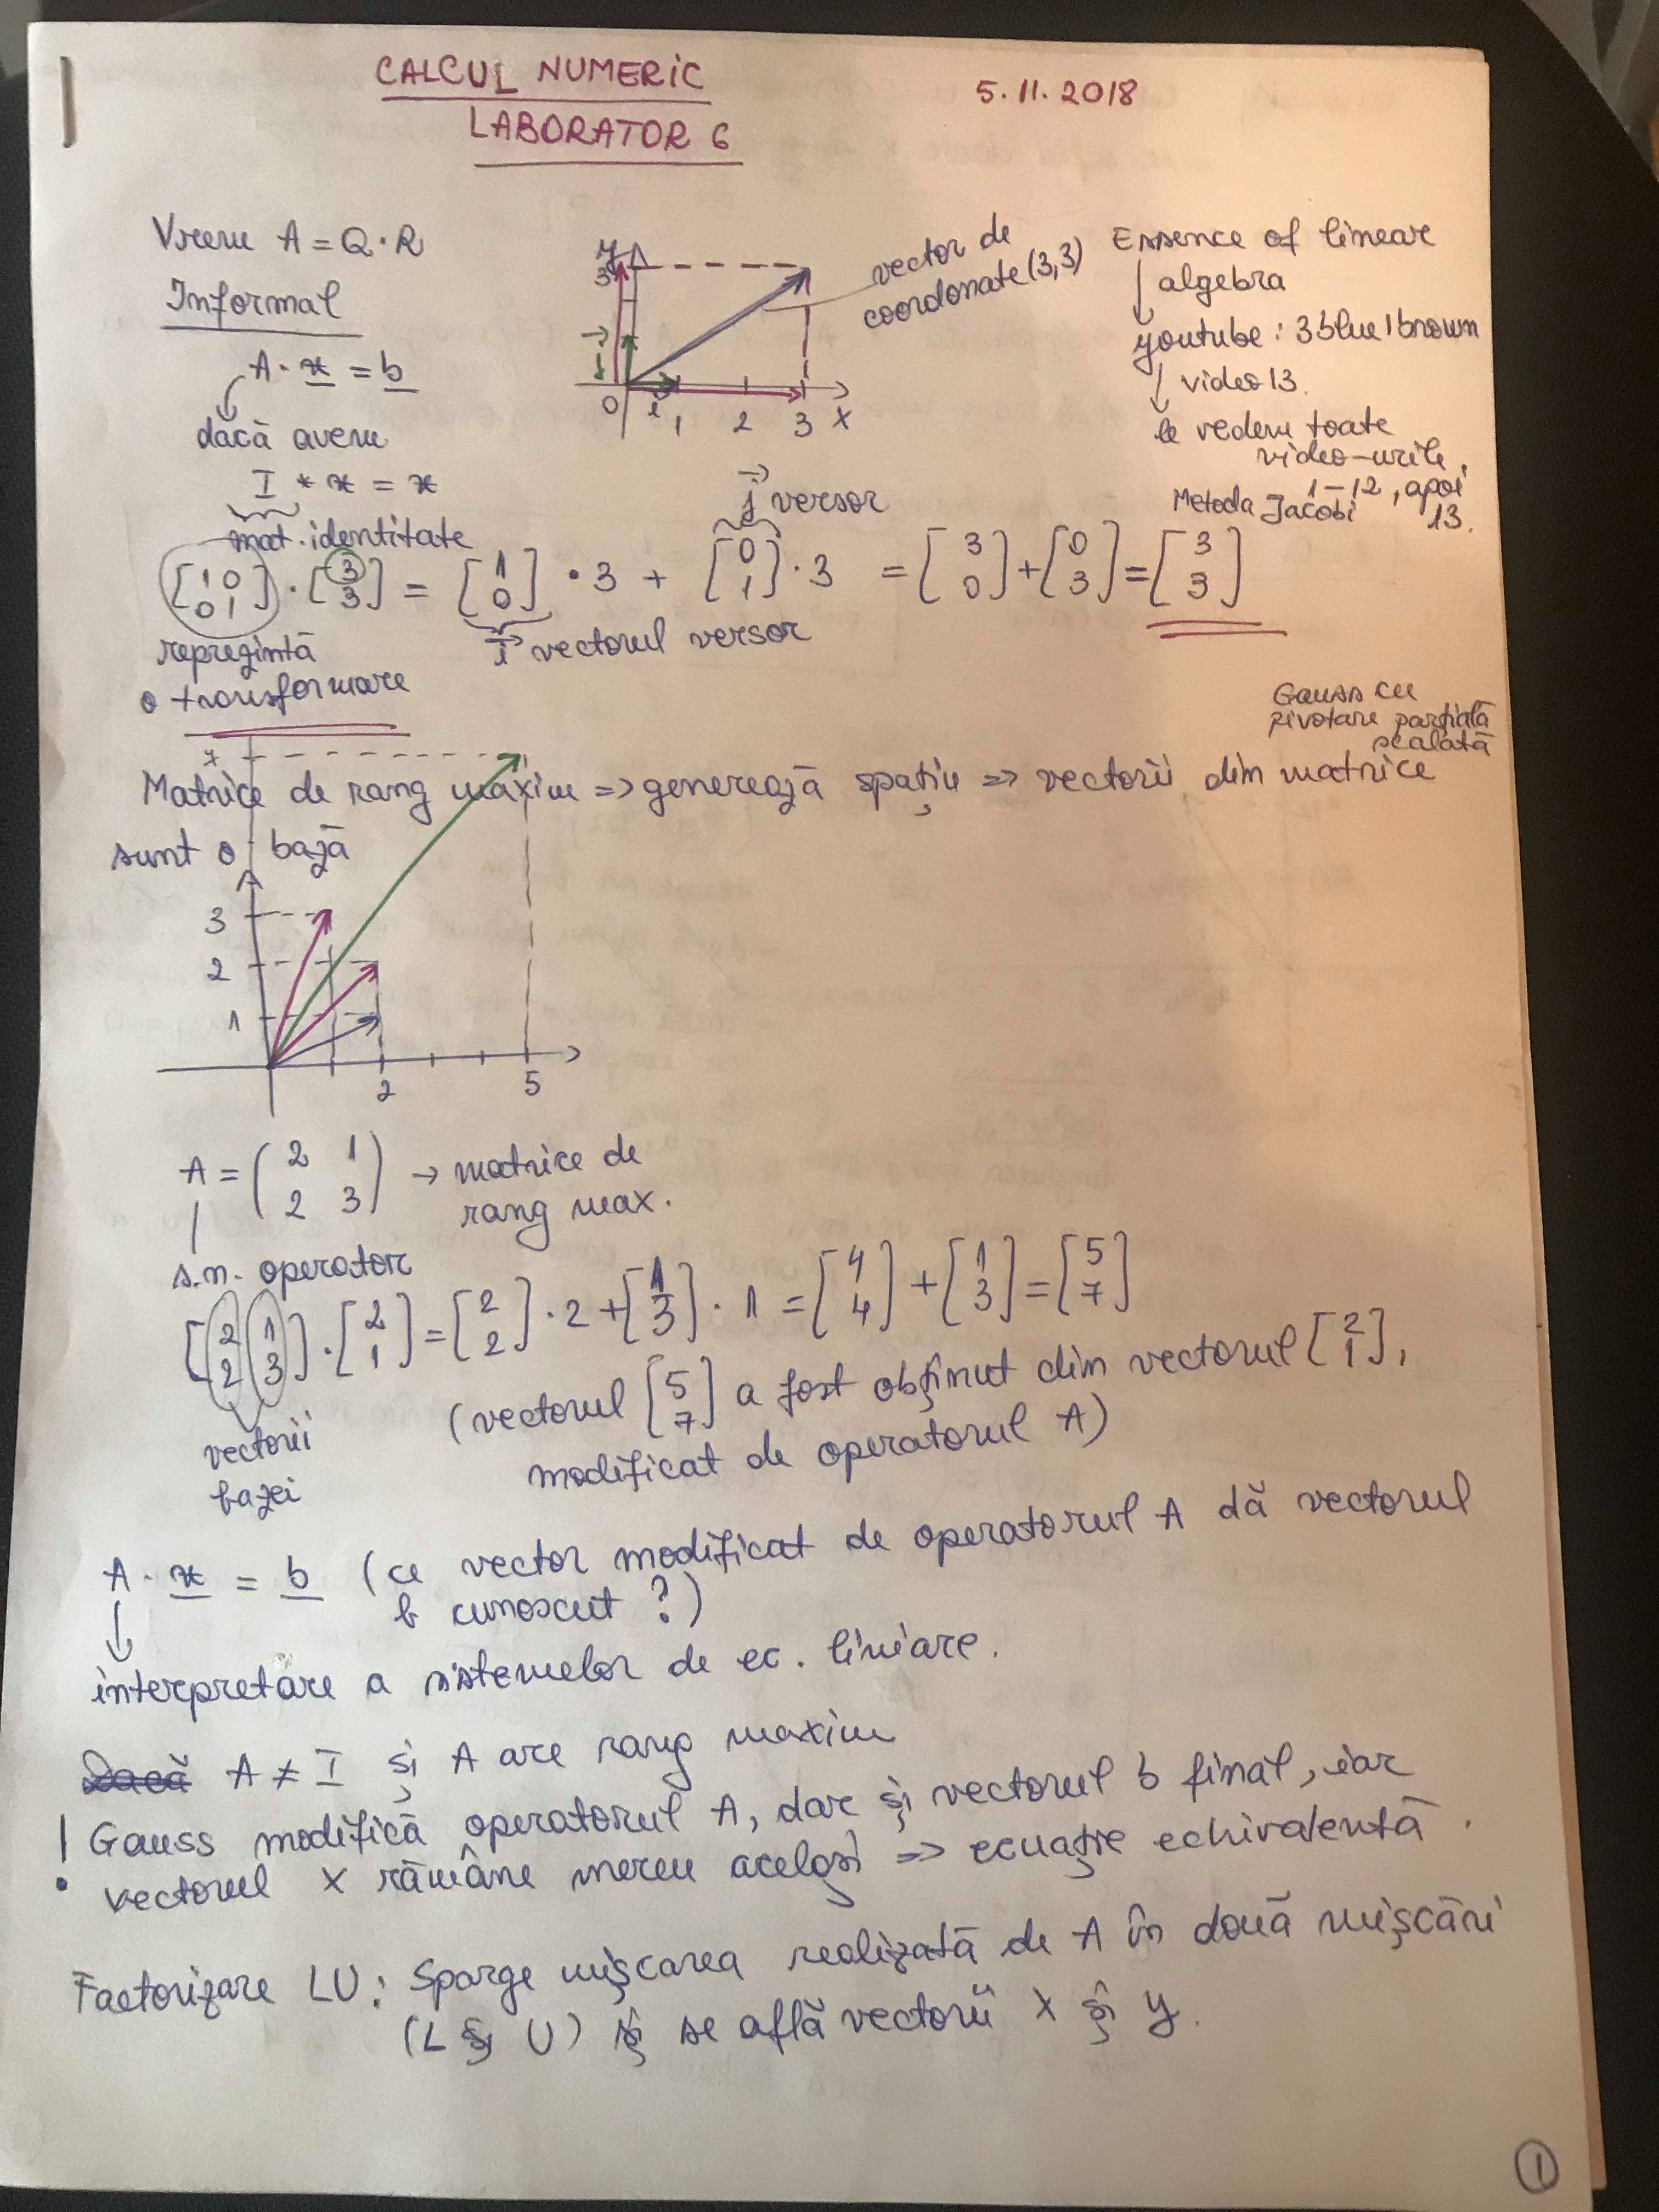 CALCUL NUMERIC
5.11.2018
LABORATOR 6
Vrem A = Q · R
Informal
A · x = b
dacă avem
I * x = x
mat. identitate
y
3
j
0 i 1 2 3 x
vector de
coordonate (3,3)
Essence of linear
algebra
youtube: 3blue1brown
video 13.
le vedem toate
video-urile,
1-12, apoi
13.
Metoda Jacobi
j versor
[1 0; 0 1] · [3; 3] = [1; 0] · 3 + [0; 1] · 3 = [3; 0] + [0; 3] = [3; 3]
i vectorul versor
reprezintă
o transformare
Gauss cu
pivotare parțială
scalată
7
Matrice de rang maxim => generează spațiu => vectorii din matrice
sunt o bază
3
2
1
2 5
A = (2 1; 2 3) → matrice de
rang max.
s.n. operator
[2 1; 2 3] · [2; 1] = [2; 2] · 2 + [1; 3] · 1 = [4; 4] + [1; 3] = [5; 7]
vectorii
bazei
(vectorul [5; 7] a fost obținut din vectorul [2; 1],
modificat de operatorul A)
A · x = b (ce vector modificat de operatorul A dă vectorul
b cunoscut ?)
interpretare a sistemelor de ec. liniare.
Dacă A ≠ I și A are rang maxim
! Gauss modifică operatorul A, dar și vectorul b final, iar
vectorul x rămâne mereu același => ecuație echivalentă.
Factorizare LU: Sparge mișcarea realizată de A în două mișcări
(L și U) și se află vectorii x și y.
1